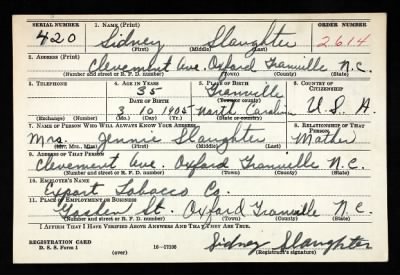 SERIAL NUMBER 1. NAME (Print) ORDER NUMBER
420 Sidney Slaughter 2614
(First) (Middle) (Last)
2. ADDRESS (Print)
Clevement Ave. Oxford Granville N.C.
(Number and street or R. F. D. number) (Town) (County) (State)
3. TELEPHONE 4. AGE IN YEARS 5. PLACE OF BIRTH 6. COUNTRY OF CITIZENSHIP
35 Granville
DATE OF BIRTH (Town or county)
3 10 1905 North Carolina U.S.A.
(Exchange) (Number) (Mo.) (Day) (Yr.) (State or country)
7. NAME OF PERSON WHO WILL ALWAYS KNOW YOUR ADDRESS 8. RELATIONSHIP OF THAT PERSON
Mrs. Jennie Slaughter Mother
(Mr., Mrs., Miss) (First) (Middle) (Last)
9. ADDRESS OF THAT PERSON
Clevement Ave. Oxford Granville N.C.
(Number and street or R. F. D. number) (Town) (County) (State)
10. EMPLOYER'S NAME
Export Tobacco Co.
11. PLACE OF EMPLOYMENT OR BUSINESS
St. Oxford Granville N.C.
(Number and street or R. F. D. number) (Town) (County) (State)
I AFFIRM THAT I HAVE VERIFIED ABOVE ANSWERS AND THAT THEY ARE TRUE.
REGISTRATION CARD
D. S. S. Form 1 (over) 16-17105 Sidney Slaughter
(Registrant's signature)